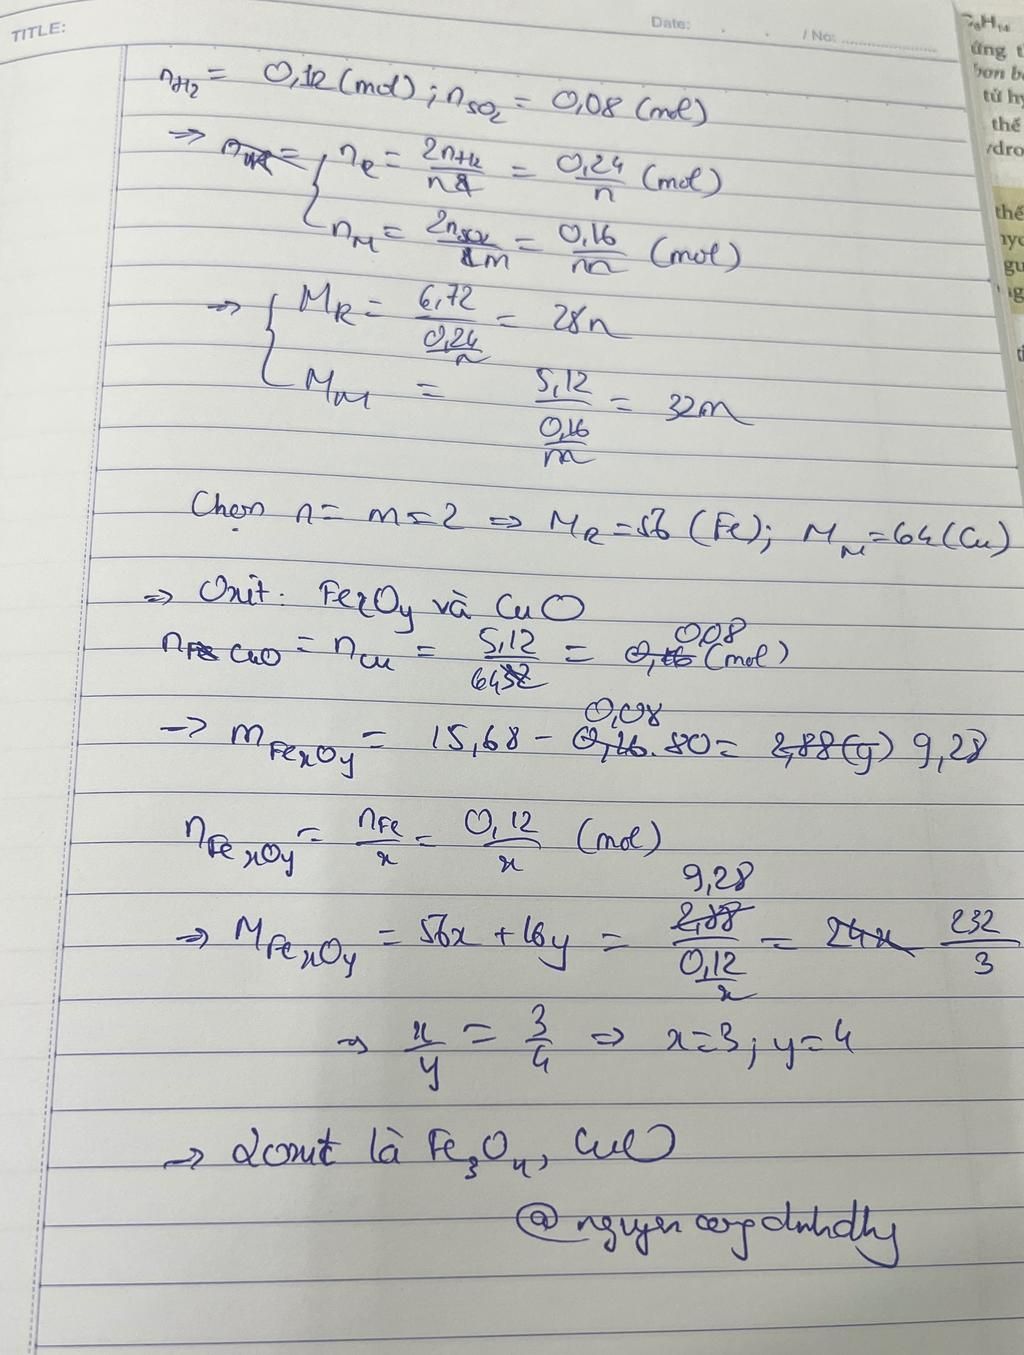 TITLE:
Date: . . / No: ..............
n_H2 = 0,12 (mol) ; n_SO2 = 0,08 (mol)
=> { n_R = 2n_H2/n = 0,24/n (mol)
n_M = 2n_SO2/m = 0,16/m (mol)
=> { M_R = 6,72/(0,24/n) = 28n
M_M = 5,12/(0,16/m) = 32m
Chọn n = m = 2 => M_R = 56 (Fe); M_M = 64 (Cu)
=> Oxit: FexOy và CuO
n_CuO = n_Cu = 5,12/64 = 0,08 (mol)
-> m_FexOy = 15,68 - 0,08.80 = 9,28
n_FexOy = n_Fe/x = 0,12/x (mol)
=> M_FexOy = 56x + 16y = 9,28/(0,12/x) = 232/3
=> x/y = 3/4 => x=3; y=4
=> 2 oxit là Fe3O4, CuO
H14
ứng
bon b
tử hy
thế
dro
thế